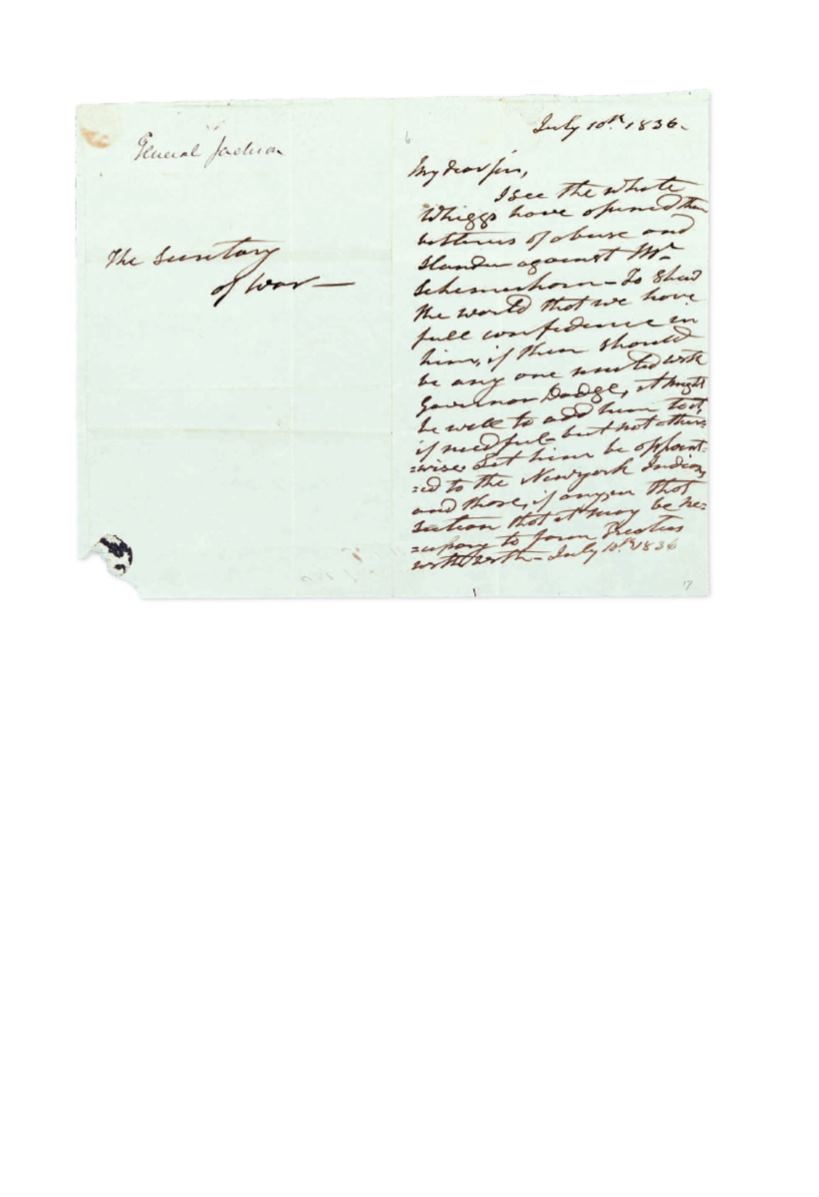 General Jackson
The Secretary
of War —
6
July 10th 1836.
My dear sir,
I see the whole
Whiggs have opened their
batteries of abuse and
slander against Mr
Schemerhorn — To shew
the world that we have
full confidence in
him, if there should
be any one united with
Governor Dodge, it might
be well to add him to it,
if needful but not other=
=wise. Let him be appoint=
=ed to the Newyork Indians
and those, if any, in that
section that it may be ne=
=cessary to form Treaties
with — July 10th 1836
17